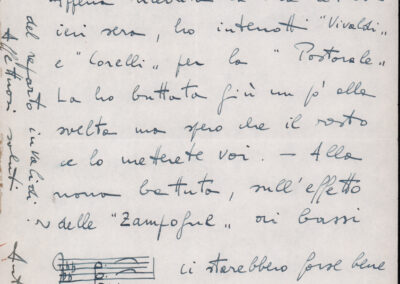 Appena
ieri sera, ho interrotti "Vivaldi„
e "Corelli„ per la "Pastorale„
La ho buttata giù un pò alla
svelta ma spero che il resto
ce lo metterete voi. — Alla
nona battuta, sull'effetto
delle "Zampogne„ oi bassi
ci starebbero forse bene
del reparto invalidi?
Affettuosi saluti
Ant